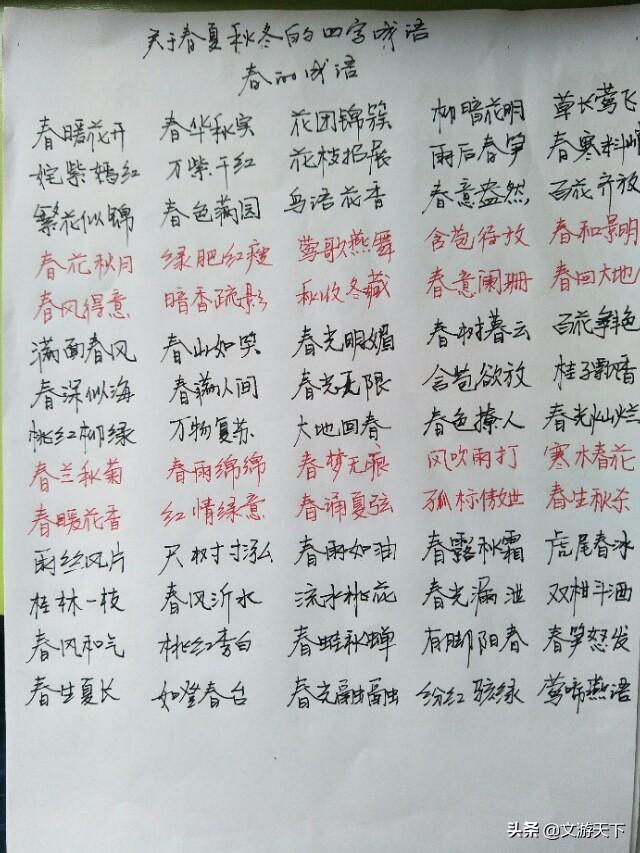 关于春夏秋冬的四字成语
春的成语
春暖花开 春华秋实 花团锦簇 柳暗花明 草长莺飞
姹紫嫣红 万紫千红 花枝招展 雨后春笋 春寒料峭
繁花似锦 春色满园 鸟语花香 春意盎然 百花齐放
春花秋月 绿肥红瘦 莺歌燕舞 含苞待放 春和景明
春风得意 暗香疏影 秋收冬藏 春意阑珊 春回大地
满面春风 春山如笑 春光明媚 春树暮云 百花争艳
春深似海 春满人间 春光无限 含苞欲放 桂子飘香
桃红柳绿 万物复苏 大地回春 春色撩人 春光灿烂
春兰秋菊 春雨绵绵 春梦无痕 风吹雨打 寒木春花
春暖花香 红情绿意 春诵夏弦 孤标傲世 春生秋杀
雨丝风片 尺树寸泓 春雨如油 春露秋霜 虎尾春冰
桂林一枝 春风沂水 流水桃花 春光漏泄 双柑斗酒
春风和气 桃红李白 春蛙秋蝉 有脚阳春 春笋怒发
春生夏长 如登春台 春光融融 纷红骇绿 莺啼燕语
头条@文游天下